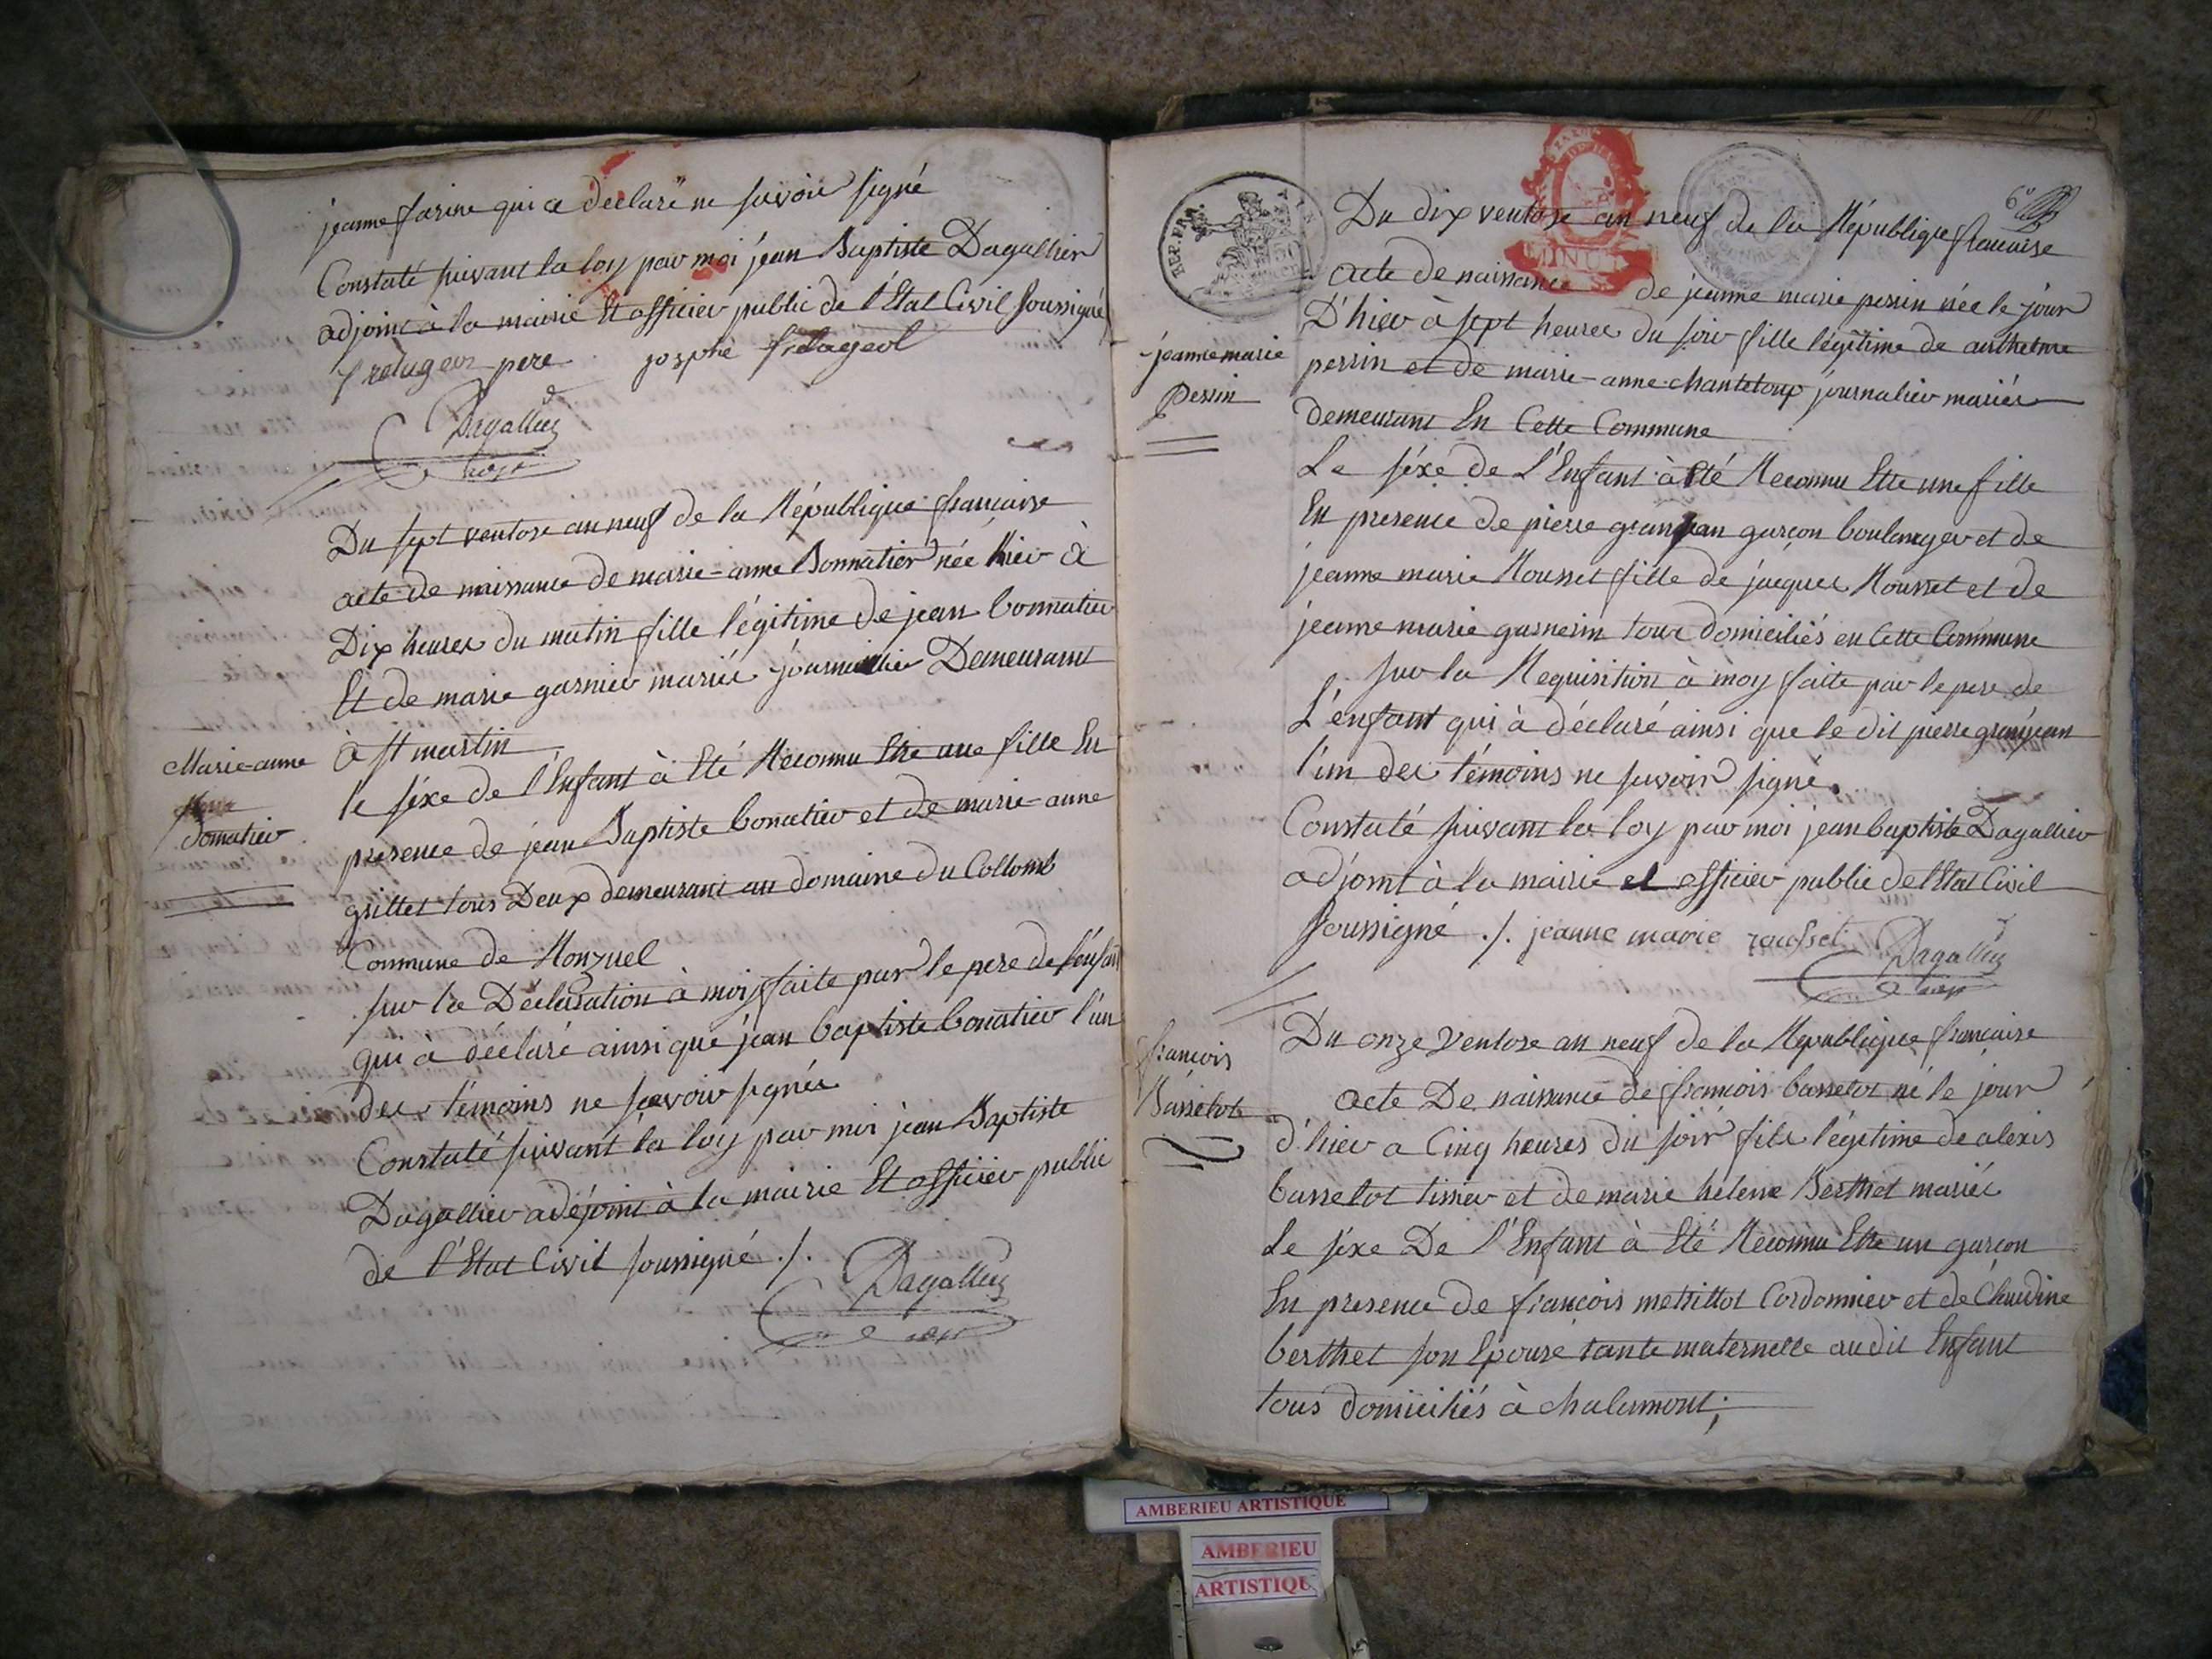 jeanne farine qui a déclaré ne savoir signé
Constaté suivant la loy par moi jéan Baptiste Dagallier
adjoint à la mairie Et officier public de l'Etat Civil soussigné
pere josphe
Dagallier
Du sept ventose an neuf de la République francaise
acte de naissance de marie-anne Bonnatier née hier à
Dix heures du matin fille légitime de jean bonnatier
Et de marie garnier mariés journallier Demeurant
à st martin
le séxe de l'Enfant à Eté Reconnu Etre une fille En
presence de jéan Baptiste bonatier et de marie-anne
grillet tous Deux demeurant au domaine du Collomb
Commune de Monzuel
sur la Déclaration à moi faite par le pere de l'enfant
qui à déclaré ainsi que jéan baptiste bonatier l'un
des témoins ne savoir signés
Constaté suivant la loy par moi jean Baptiste
Dagallier adéjoint à la mairie Et officier public
de l'Etat Civil soussigné ./.
Dagallier
Marie-anne
bonatier
6e
REP. FRA.
MINUTE
Du dix ventose an neuf de la République francaise
acte de naissance de jeanne marie perrin née le jour
D'hier à sept heures du soir fille légitime de anthelme
perrin et de marie-anne chanteloup journalier mariés
demeurant En Cette Commune
Le séxe de L'Enfant à Eté Reconnu Etre une fille
En presence de pierre granjean garçon boulanger et de
jeanne marie Rousset fille de jacques Rousset et de
jeanne marie garnerin tous domiciliés en Cette Commune
sur la Requisition à moy faite par le pere de
L'enfant qui à déclaré ainsi que le dit pierre granjean
l'un des témoins ne savoir signé.
Constaté suivant la loy par moi jean baptiste Dagallier
adjoint à la mairie et officier public de l'Etat Civil
soussigné ./. jeanne marie rousset Dagallier
jeanne marie
Perrin
Du onze Ventose an neuf de la République francaise
acte De naissance de francois basselot né le jour
d'hier a Cinq heures du soir fils légitime de alexis
basselot tissier et de marie helene Berthet mariés
Le séxe De l'Enfant à Eté Reconnu Etre un garcon
En presence de francois metrillot Cordonnier et de Claudine
berthet son Epouse tante maternelle audit Enfant
tous domiciliés à chalamont;
francois
Basselot
AMBERIEU ARTISTIQUE
AMBERIEU
ARTISTIQU